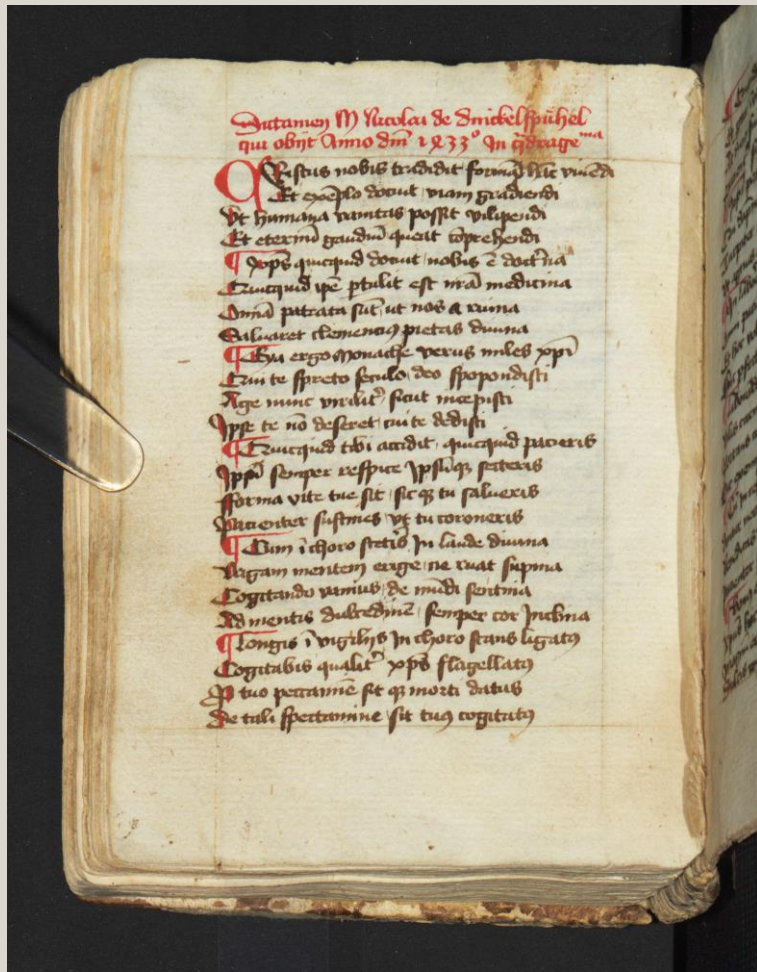 Dictamen M Nicolai de Dnickelspühel
qui obijt Anno dm̄ 1433º In q̄drage^ma
Cristus nobis tradidit formā hāc viuēdi
Et exēplo docuit viam gradiendi
Vt humana vanitas possit vilipendi
Et eternū gaudiū queat cōprehendi
¶ Xp̄s quicquid docuit nobis ē doct̄na
Quicquid ip̄e ꝑtulit est nr̄a medicina
Omīa patrata sūt ut nos a ruina
Saluaret clemencius pietas diuina
¶ Eya ergo monache verus miles xp̄i
Qui te spreto seculo deo spopondisti
Age nunc virilit̄ sicut incepisti
Ipse te nō deseret cui te dedisti
¶ Quicquid tibi accidit quicquid pacieris
Ip̄m semper respice Ipsūqꝫ secteris
Forma vite tue sit sicqꝫ tu salueris
Pacienter sustines vt tu coroneris
¶ Cum ī choro stet̄is In laude diuina
Vagam mentem erige ne ruat supina
Cogitando vanius de mūdi sentina
Ad mentis dulcedinē semper cor Inclina
¶ Longis ī vigilijs In choro stans ligatꝰ
Cogitabis qualit̄ xp̄s flagellatꝰ
P tuo peccamīe sit qꝫ morti datus
De tali spectamine sit tuꝰ cogitatꝰ